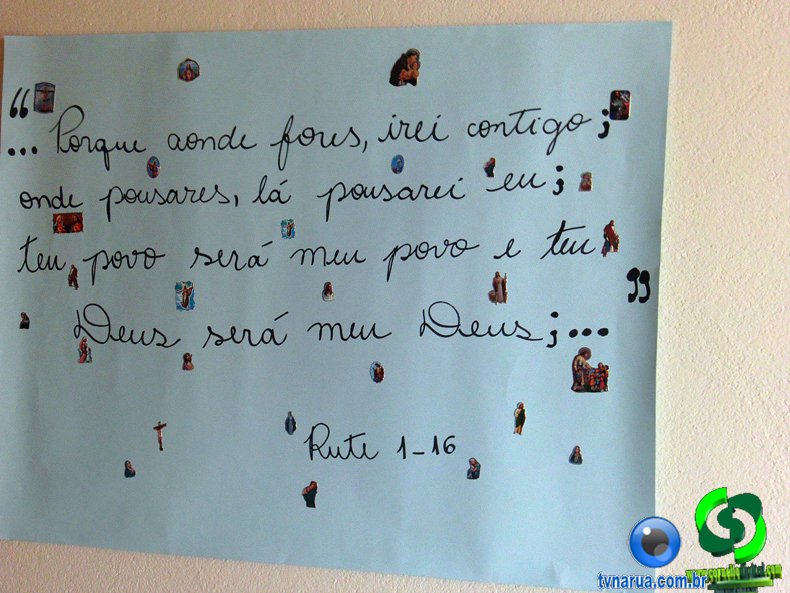 "... Porque aonde fores, irei contigo;
onde pousares, lá pousarei eu;
teu povo será meu povo e teu
Deus será meu Deus;..."
Rute 1-16
tvnarua.com.br
www.corneliodigital.com